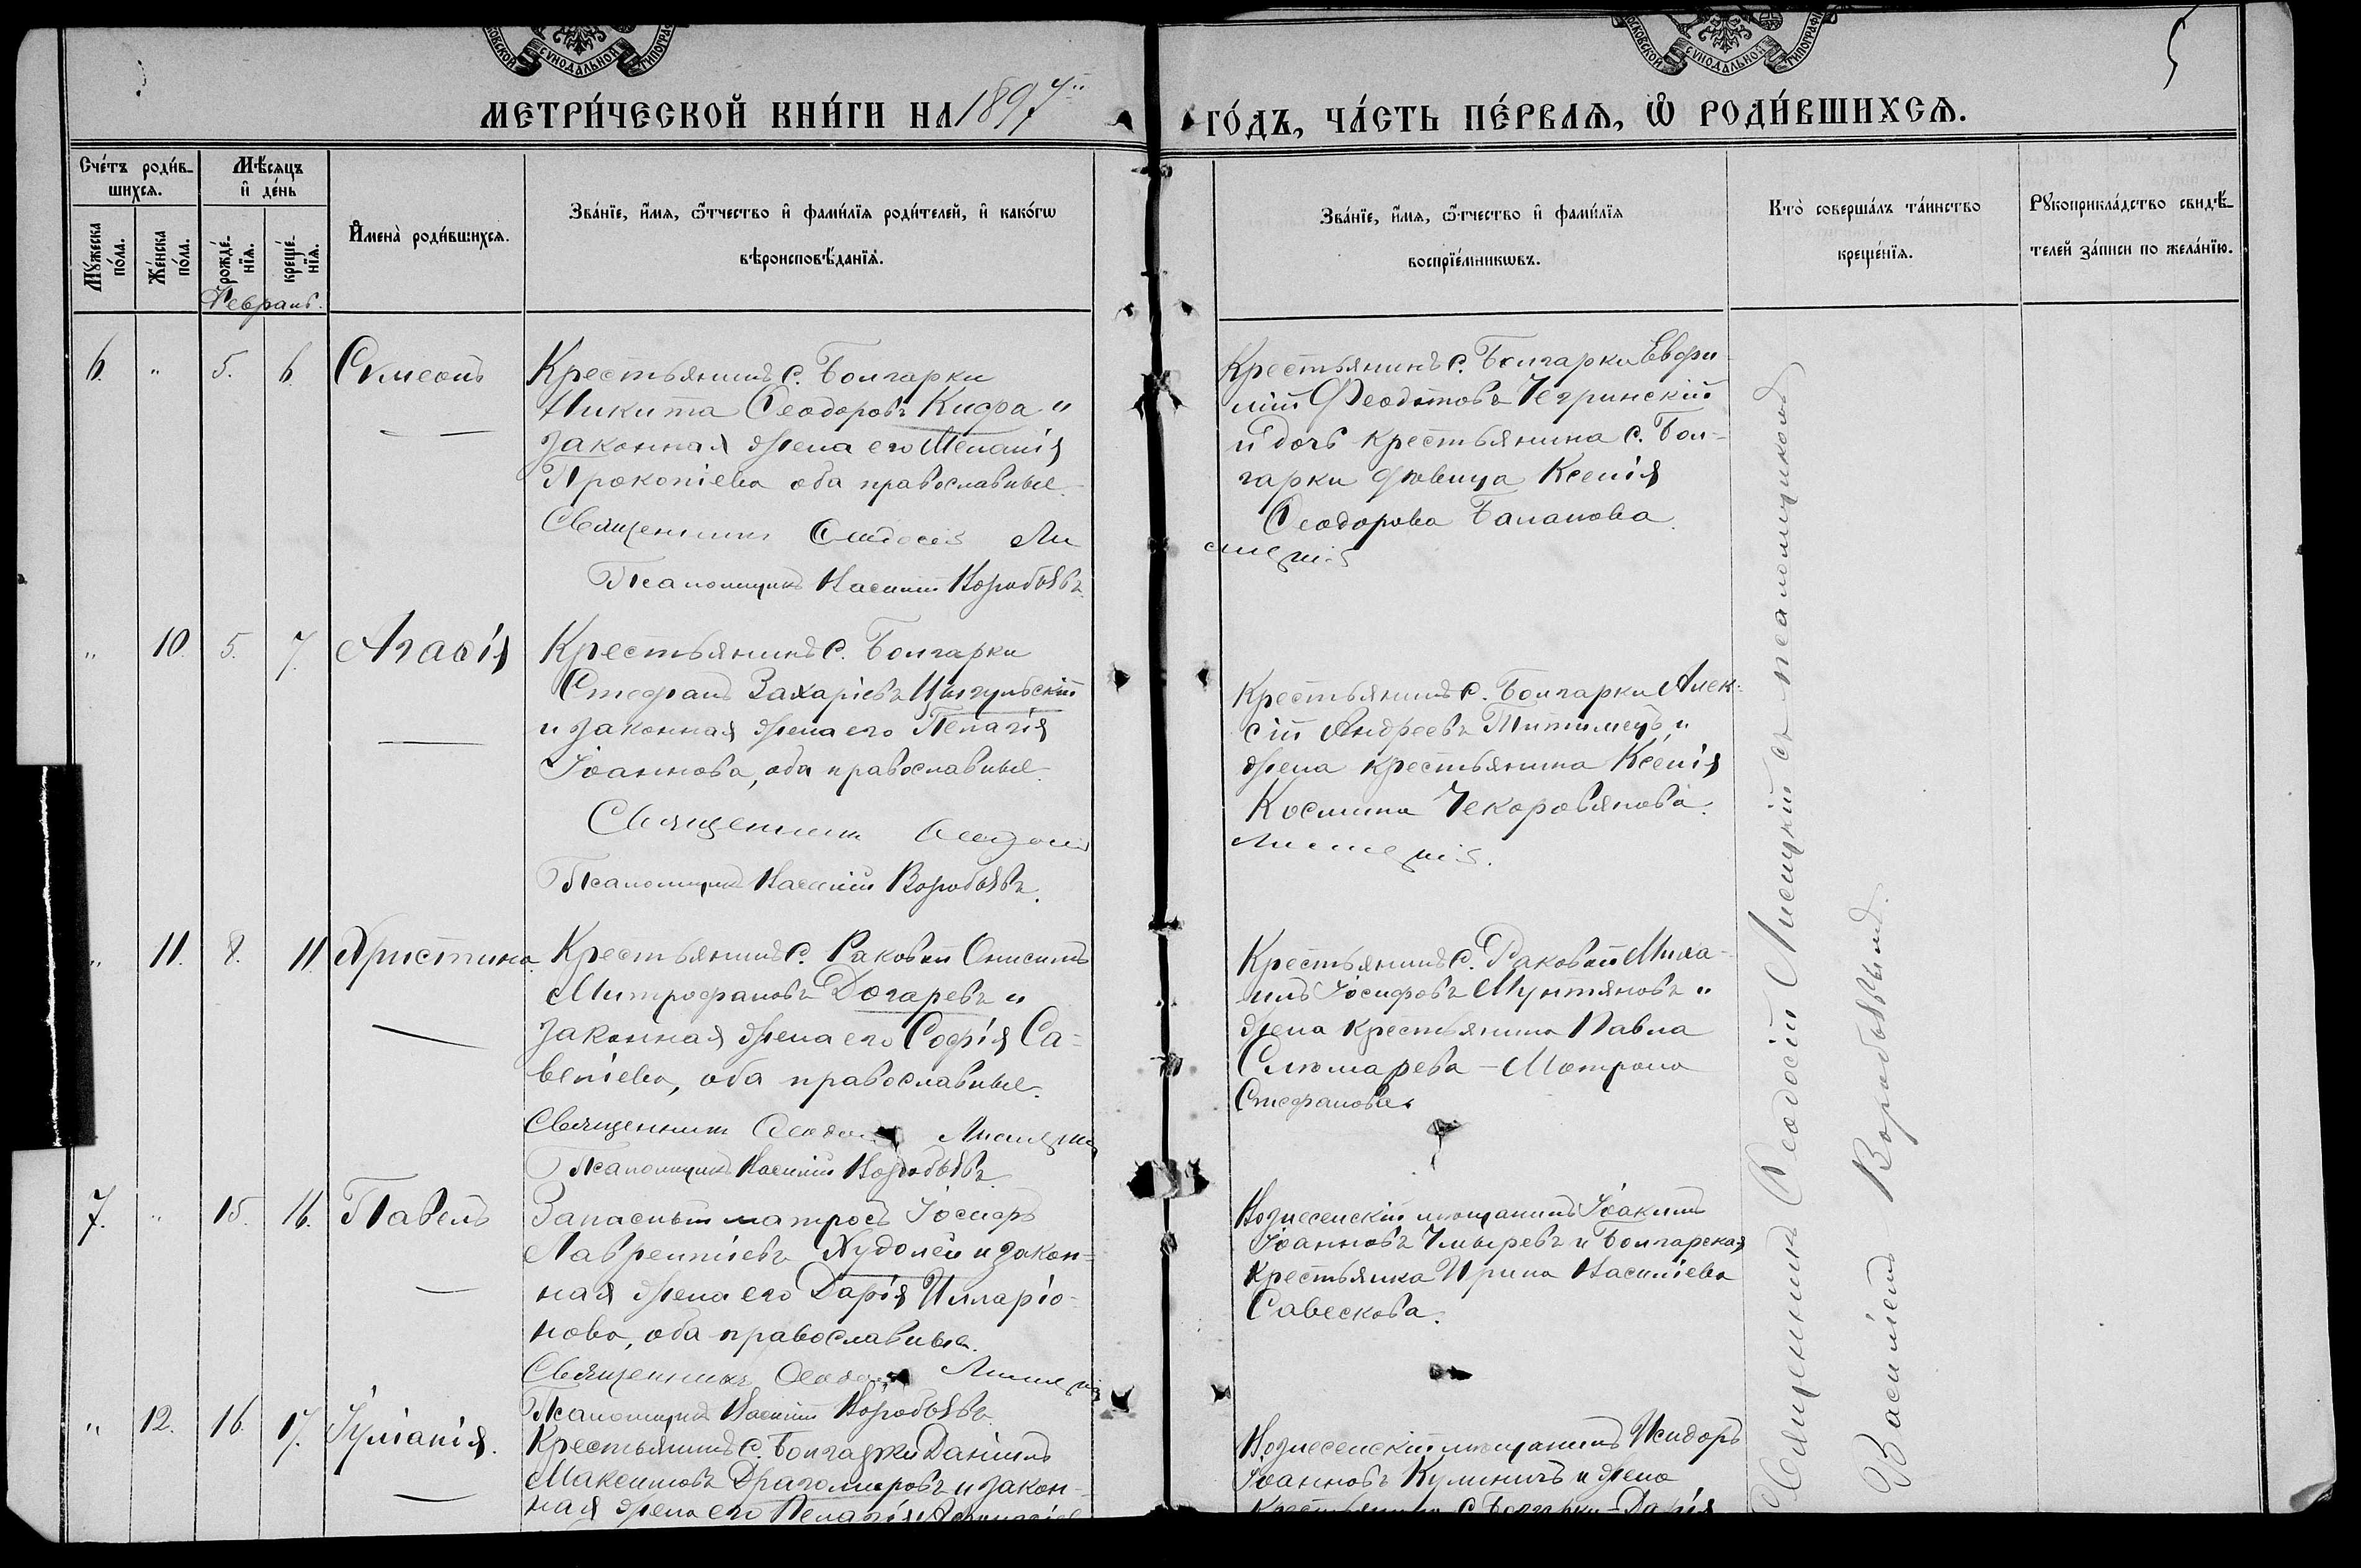 МОСКОВСКОЙ СѴНОДАЛЬНОЙ ТИПОГРАФ
МОСКОВСКОЙ СѴНОДАЛЬНОЙ ТИПОГРАФ
5
МЕТРИ́ЧЕСКОЙ КНИ́ГИ НА 1897й
ГО́ДЪ, ЧА́СТЬ ПЕ́РВАѦ, Ѡ҆ РОДИ́ВШИХСѦ.
Сче́тъ роди́в-
шихсѧ.
Мѣ́сѧцъ
и҆ де́нь
Мꙋ́жеска
по́ла.
Же́нска
по́ла.
рожде́-
нїѧ.
креще́-
нїѧ.
Февраль.
И҆мена̀ роди́вшихсѧ.
Зва́нїе, и҆́мѧ, ѻ҆́тчество и҆ фами́лїѧ роди́телей, и҆ како́гѡ
вѣроисповѣ́данїѧ.
Зва́нїе, и҆́мѧ, ѻ҆́тчество и҆ фами́лїѧ
воспрїе́мникѡвъ.
Кто̀ соверша́лъ та́инство
креще́нїѧ.
Рꙋкоприкла́дство свидѣ́-
телей за́писи по жела́нїю.
6. " 5. 6. Симеонъ
Крестьянинъ с. Болгарки
Никита Ѳеодоровъ Кифа и
законная жена его Меланія
Прокопіева оба православные.
Священникъ Ѳеодосій Ли
Псаломщикъ Василій Воробьевъ.
Крестьянинъ с. Болгарки Евфи
мій Феодотовъ
и дочь крестьянина с. Бол-
гарки дѣвица Ксенія
Ѳеодорова Баланова.
сицкій
" 10. 5. 7. Агафія
Крестьянинъ с. Болгарки
Стефанъ Захаріевъ Цыгульскій
и законная жена его Пелагія
Іоаннова, оба православные.
Священникъ Ѳеодосій
Псаломщикъ Василій Воробьевъ.
Крестьянинъ с. Болгарки Алек-
сій Андреевъ и
жена крестьянина Ксенія
Космина
Лисицкій.
" 11. 8. 11. Христина.
Крестьянинъ с. Раковой Онисимъ
Митрофановъ Догаревъ и
законная жена его Софія Са-
веліева, оба православные.
Священникъ Ѳеодосій Лисицкій
Псаломщикъ Василій Воробьевъ.
Крестьянинъ с. Раковой Миха-
илъ Іосифовъ Мунтяновъ и
жена крестьянина Павла
Слюсарева - Матрона
Стефанова.
7. " 15. 16. Павелъ
Запасный матросъ Іосифъ
Лаврентіевъ Худолей и закон-
ная жена его Дарія Илларіо-
нова, оба православные.
Священникъ Ѳеодосій Лисицкій
Псаломщикъ Василій Воробьевъ.
Вознесенскій мѣщанинъ Іоакимъ
Іоанновъ Чмыревъ и Болгарская
крестьянка Ирина Василіева
Савескова.
" 12. 16. 17. Іуліанія.
Крестьянинъ с. Болгарки Даніилъ
Максимовъ Драгомировъ и закон-
ная жена его Пелагія
Вознесенскій мѣщанинъ Исидоръ
Іоанновъ Кулиничъ и жена
крестьянина с. Болгарки - Дарія
Священникъ Ѳеодосій Лисицкій съ псаломщикомъ
Василіемъ Воробьевымъ.